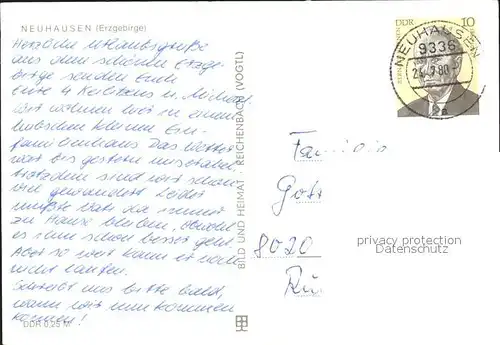 NEUHAUSEN (Erzgebirge)
Herzliche Urlaubsgrüße
aus dem schönen Erzge-
birge senden Euch
Eure 4 u. Michael
Wir wohnen hier in einem
hübschen kleinen Ein-
familienhaus. Das Wetter
war bis gestern miserabel.
Trotzdem sind wir schon
viel gewandert. Leider
mußte Vati da immer
zu Hause bleiben, obwohl
es ihm schon besser geht.
Aber so weit kann er noch
nicht laufen.
Schreibt uns bitte bald,
wann wir nun kommen
können!
DDR 0,25 M
BILD UND HEIMAT · REICHENBACH (VOGTL)
DDR
10
NEUHAUSEN
9336
7.80
Familie
8020
privacy protection
Datenschutz